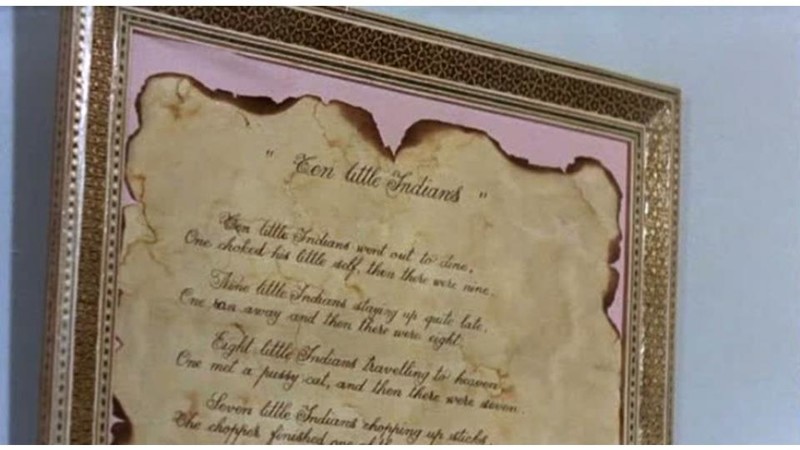 " Ten little Indians "
Ten little Indians went out to dine,
One choked his little self, then there were nine.
Nine little Indians staying up quite late,
One ran away and then there were eight.
Eight little Indians travelling to heaven
One met a pussy cat, and then there were seven.
Seven little Indians chopping up sticks,
The chopper finished one of